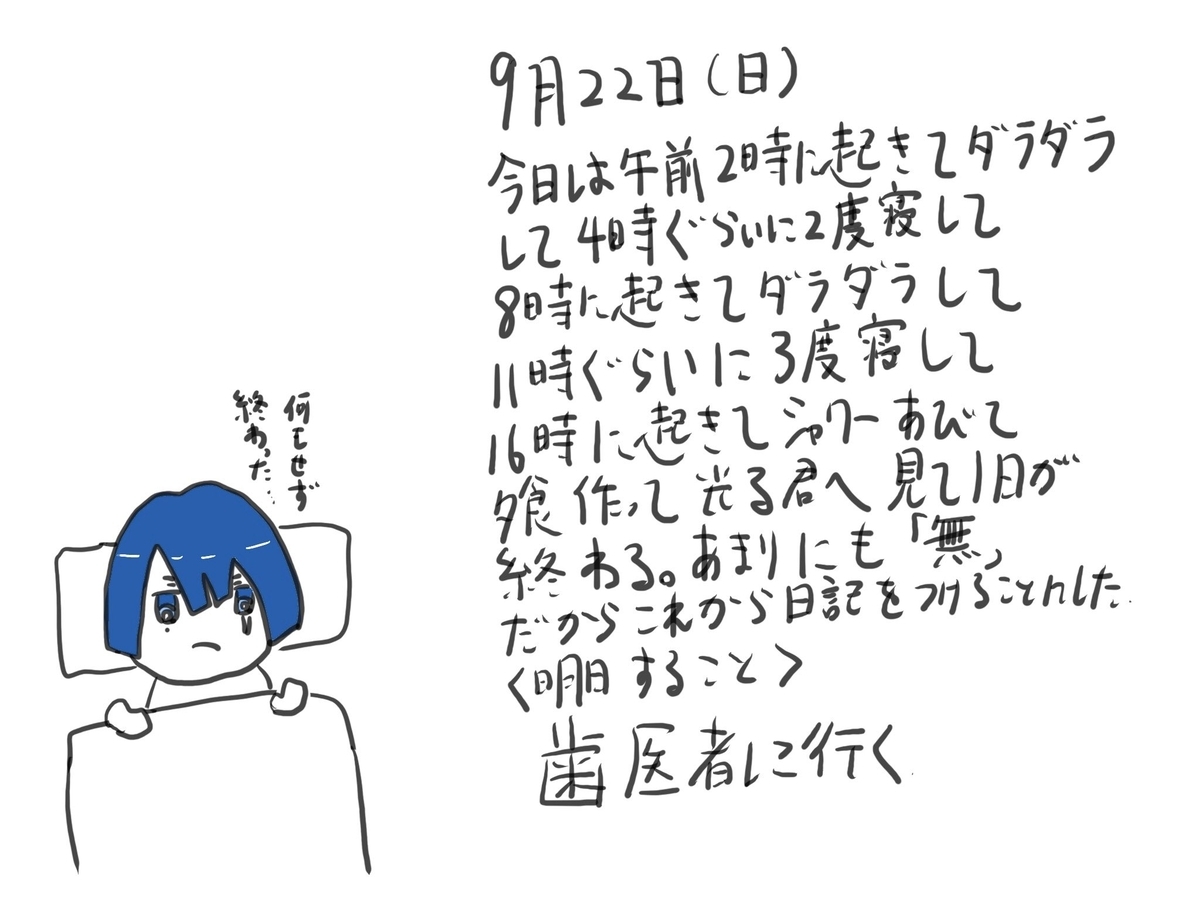 9月22日(日)
今日は午前2時に起きてダラダラ
して4時ぐらいに2度寝して
8時に起きてダラダラして
11時ぐらいに3度寝して
16時に起きてシャワーあびて
夕食作って光る君へ見て1日が
終わる。あまりにも「無」
だからこれから日記をつけることにした.
<明日すること>
歯医者に行く
何もせず
終わった…